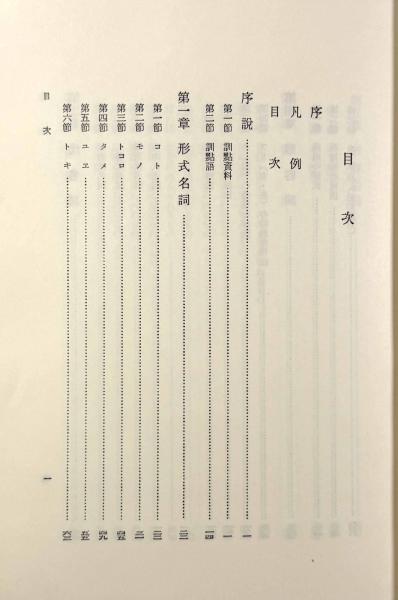 目次
序
凡例
目次
序說……一
第一節 訓點資料……一
第二節 訓點語……一四
第一章 形式名詞……二三
第一節 コト……二三
第二節 モノ……三一
第三節 トコロ……四五
第四節 タメ……四九
第五節 ユヱ……五五
第六節 トキ……六三
目次 一